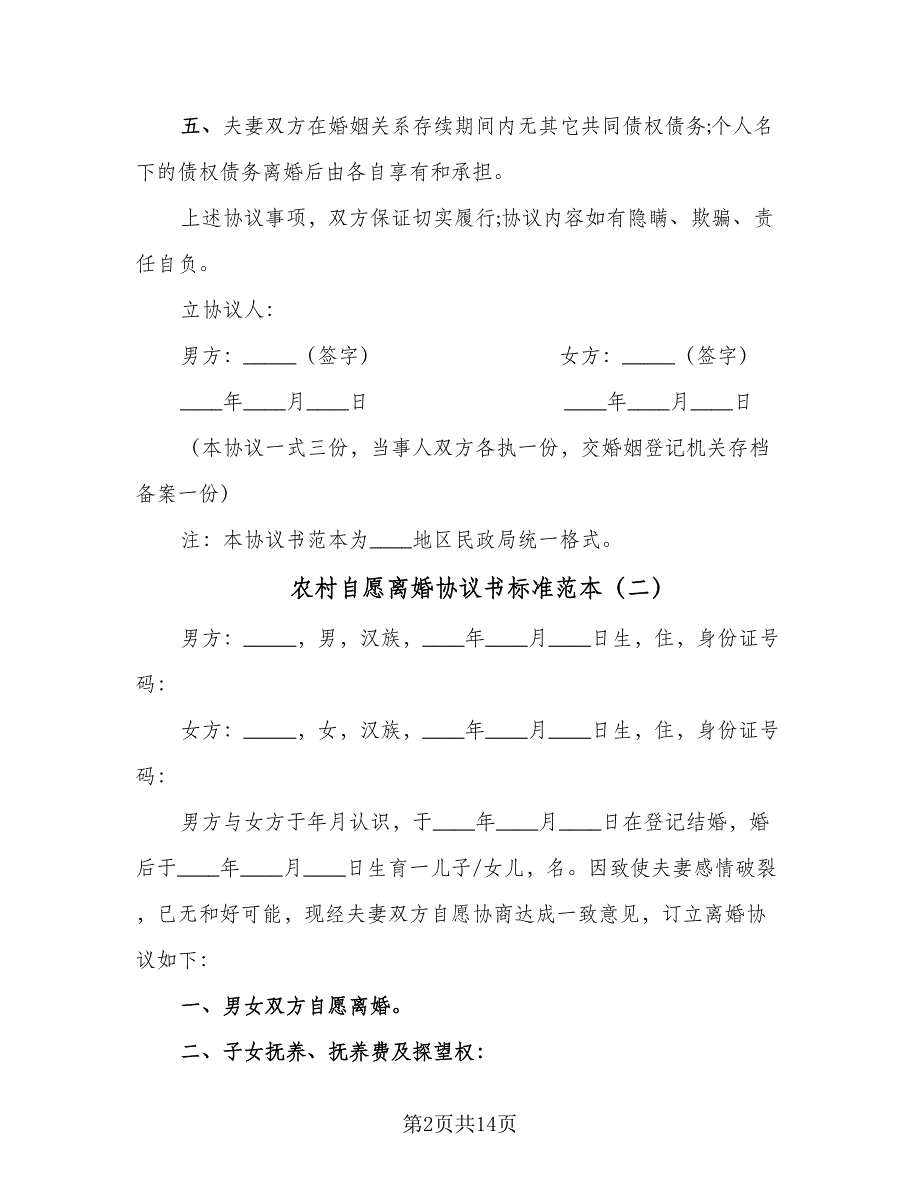 五、夫妻双方在婚姻关系存续期间内无其它共同债权债务;个人名
下的债权债务离婚后由各自享有和承担。
上述协议事项，双方保证切实履行;协议内容如有隐瞒、欺骗、责
任自负。
立协议人：
男方：_____（签字） 女方：_____（签字）
____年____月____日 ____年____月____日
（本协议一式三份，当事人双方各执一份，交婚姻登记机关存档
备案一份）
注：本协议书范本为____地区民政局统一格式。
农村自愿离婚协议书标准范本（二）
男方：_____，男，汉族，____年____月____日生，住，身份证号
码：
女方：_____，女，汉族，____年____月____日生，住，身份证号
码：
男方与女方于年月认识，于____年____月____日在登记结婚，婚
后于____年____月____日生育一儿子/女儿，名。因致使夫妻感情破裂
，已无和好可能，现经夫妻双方自愿协商达成一致意见，订立离婚协
议如下：
一、男女双方自愿离婚。
二、子女抚养、抚养费及探望权：
第2页共14页